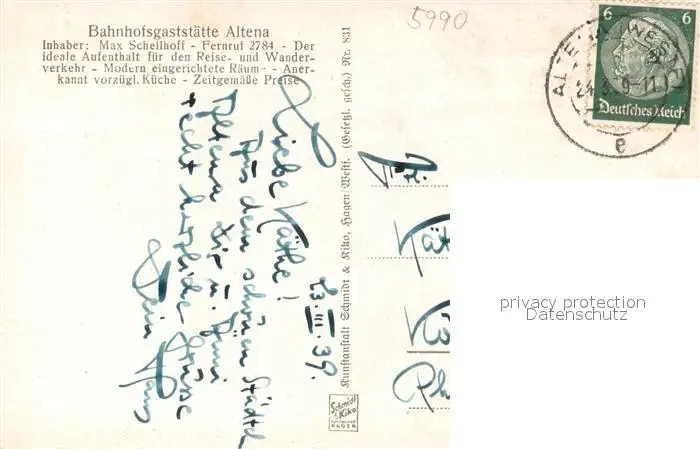 Bahnhofsgaststätte Altena
Inhaber: Max Schellhoff - Fernruf 2784 - Der
ideale Aufenthalt für den Reise- und Wander-
verkehr - Modern eingerichtete Räum- - Aner-
kannt vorzügl. Küche - Zeitgemäße Preise
5990
6 6
Deutsches Reich
ALTENA (WESTF)
24.3. 9-11
e
23.III.39.
Liebe Käthe!
Aus dem schönen Städtch
Altena Dir u.
recht herzliche Grüsse
Dein Hans
Kunstanstalt Schmidt & Kiko, Hagen/Westf. (Gesetzl. gesch.) Nr. 831
Schmidt
& Kiko
HAGEN
Frl.
Kät
Ph
privacy protection
Datenschutz